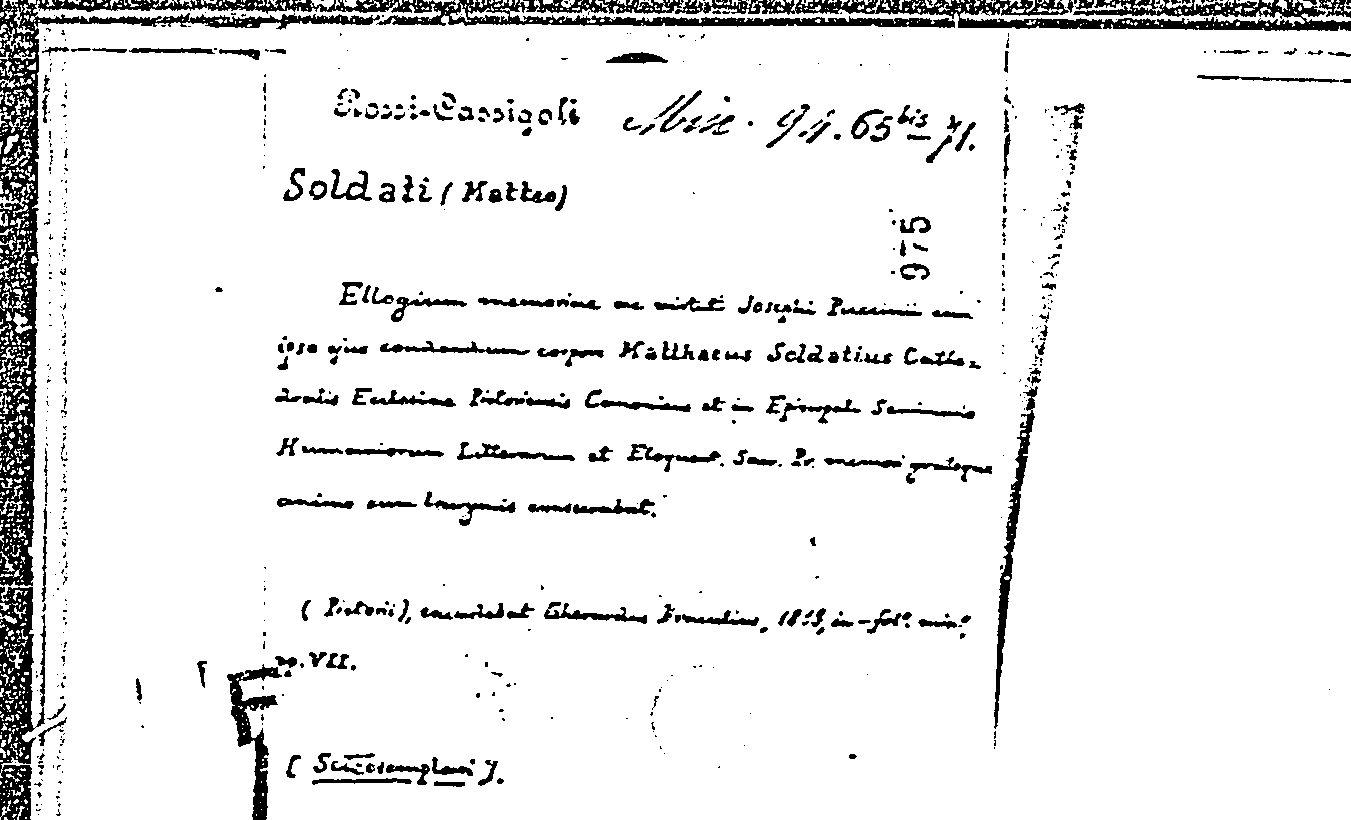 Rossi-Cassigoli Misc. 94.65bis-71.
Soldati (Matteo)
975
Ellogium memoriae ac virtuti Josephi Puccinii cum
ipse ejus condendum corpus Matthaeus Soldatius Cathe-
dralis Ecclesiae Pistoriensis Canonicus et in Episcopali Seminario
Humaniorum Litterarum et Eloquent. Sac. Pr. memori gratoque
animo cum lacrymis consecrabat.
(Pistorii), excudebat Gherardus 18 in-fol.º min.º
pp. VII.
[Sei esemplari].